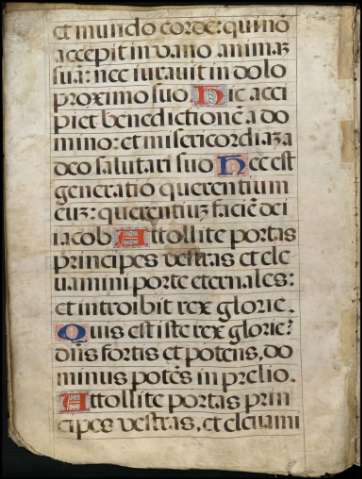 et mundo corde: qui nō
accepit in vano animaʒ
suā: nec iuravit in dolo
proximo suo Hic acci
piet benedictionē a do
mino: et misericordiaʒ a
deo salutari suo Hec est
generatio querentium
eūʒ: querentiuʒ faciē dei
iacob Attollite portas
principes vestras et ele
uamini porte eternales:
et introibit rex glorie.
Quis est iste rex glorie?
dn̄s fortis et potens, do
minus potēs in prelio.
Attollite portas prin
cipes vestras, et eleuami